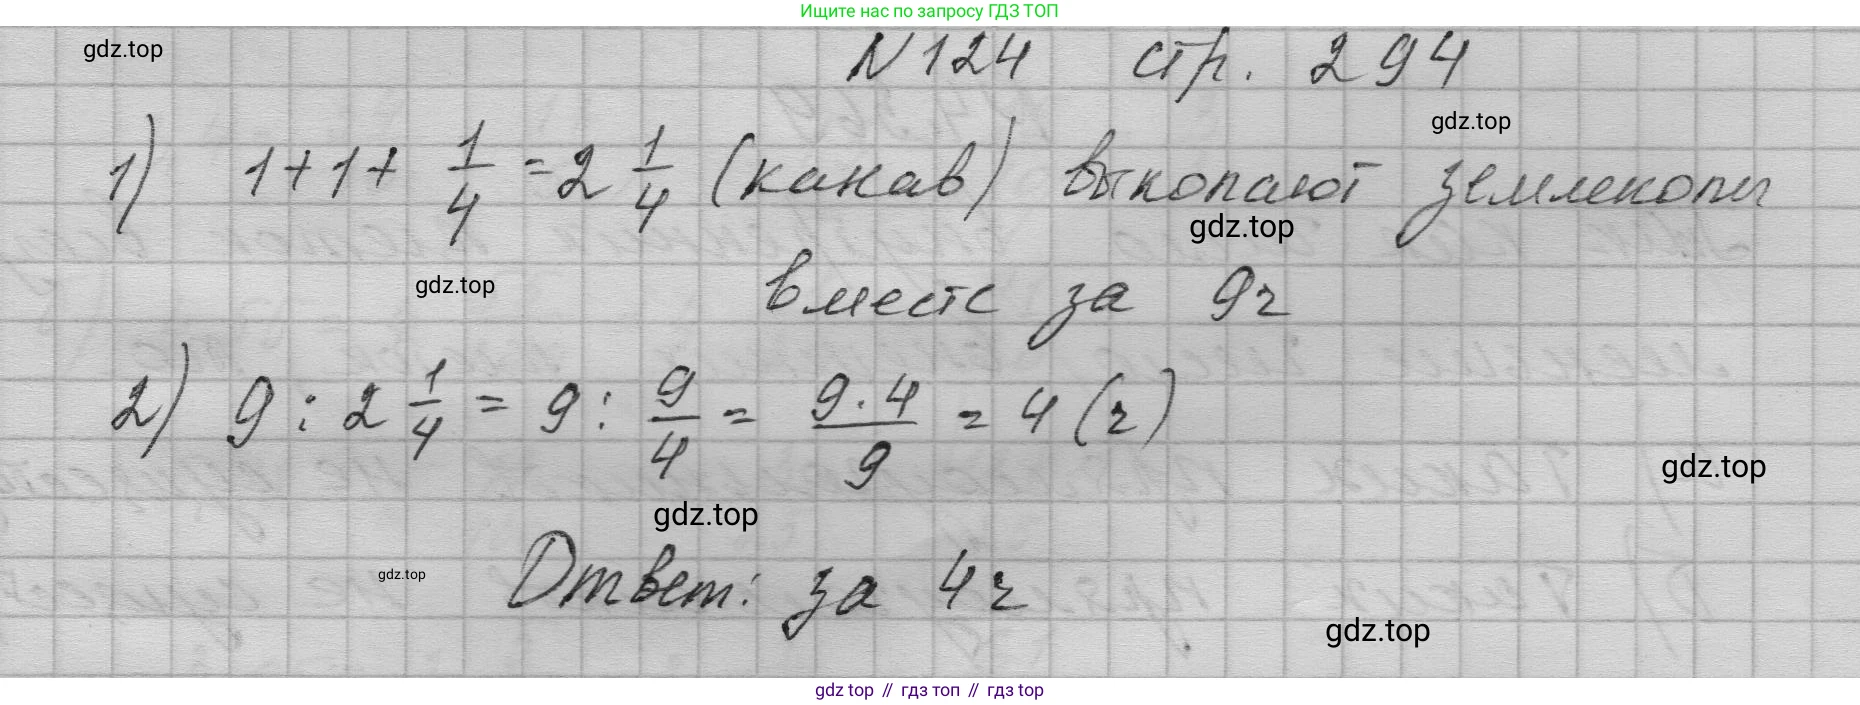 Ищите нас по запросу ГДЗ ТОП
gdz.top
N 124 стр. 294
gdz.top
1) 1+1+ 1/4 = 2 1/4 (канав) выкопают землекопы
gdz.top
gdz.top
вместе за 9ч
2) 9 : 2 1/4 = 9 : 9/4 = 9·4/9 = 4 (ч)
gdz.top
gdz.top
gdz.top
Ответ: за 4ч
gdz.top
gdz top // гдз топ // гдз top